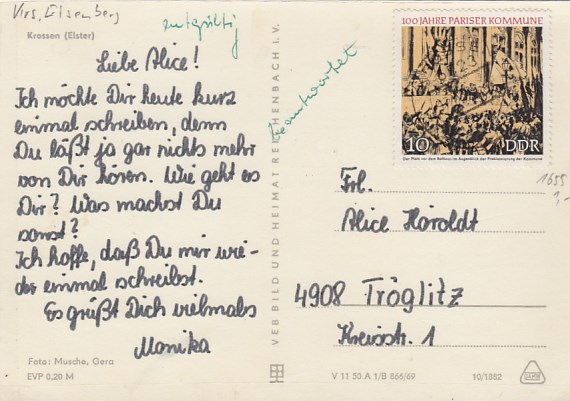 Krs. Eisenberg
Krossen (Elster)
Liebe Alice!
Ich möchte Dir heute kurz
einmal schreiben, denn
Du läßt ja gar nichts mehr
von Dir hören. Wie geht es
Dir? Was machst Du
sonst?
Ich hoffe, daß Du mir wie-
der einmal schreibst.
Es grüßt Dich vielmals
Monika
Foto: Musche, Gera
EVP 0,20 M
beantwortet
VEB BILD UND HEIMAT REICHENBACH I. V.
100 JAHRE PARISER KOMMUNE
10 DDR
Der Platz vor dem Rathaus im Augenblick der Proklamierung der Kommune
1655
1,-
Frl.
Alice Haroldt
4908 Tröglitz
Kreisstr. 1
V 11 50 A 1/B 866/69
10/1882